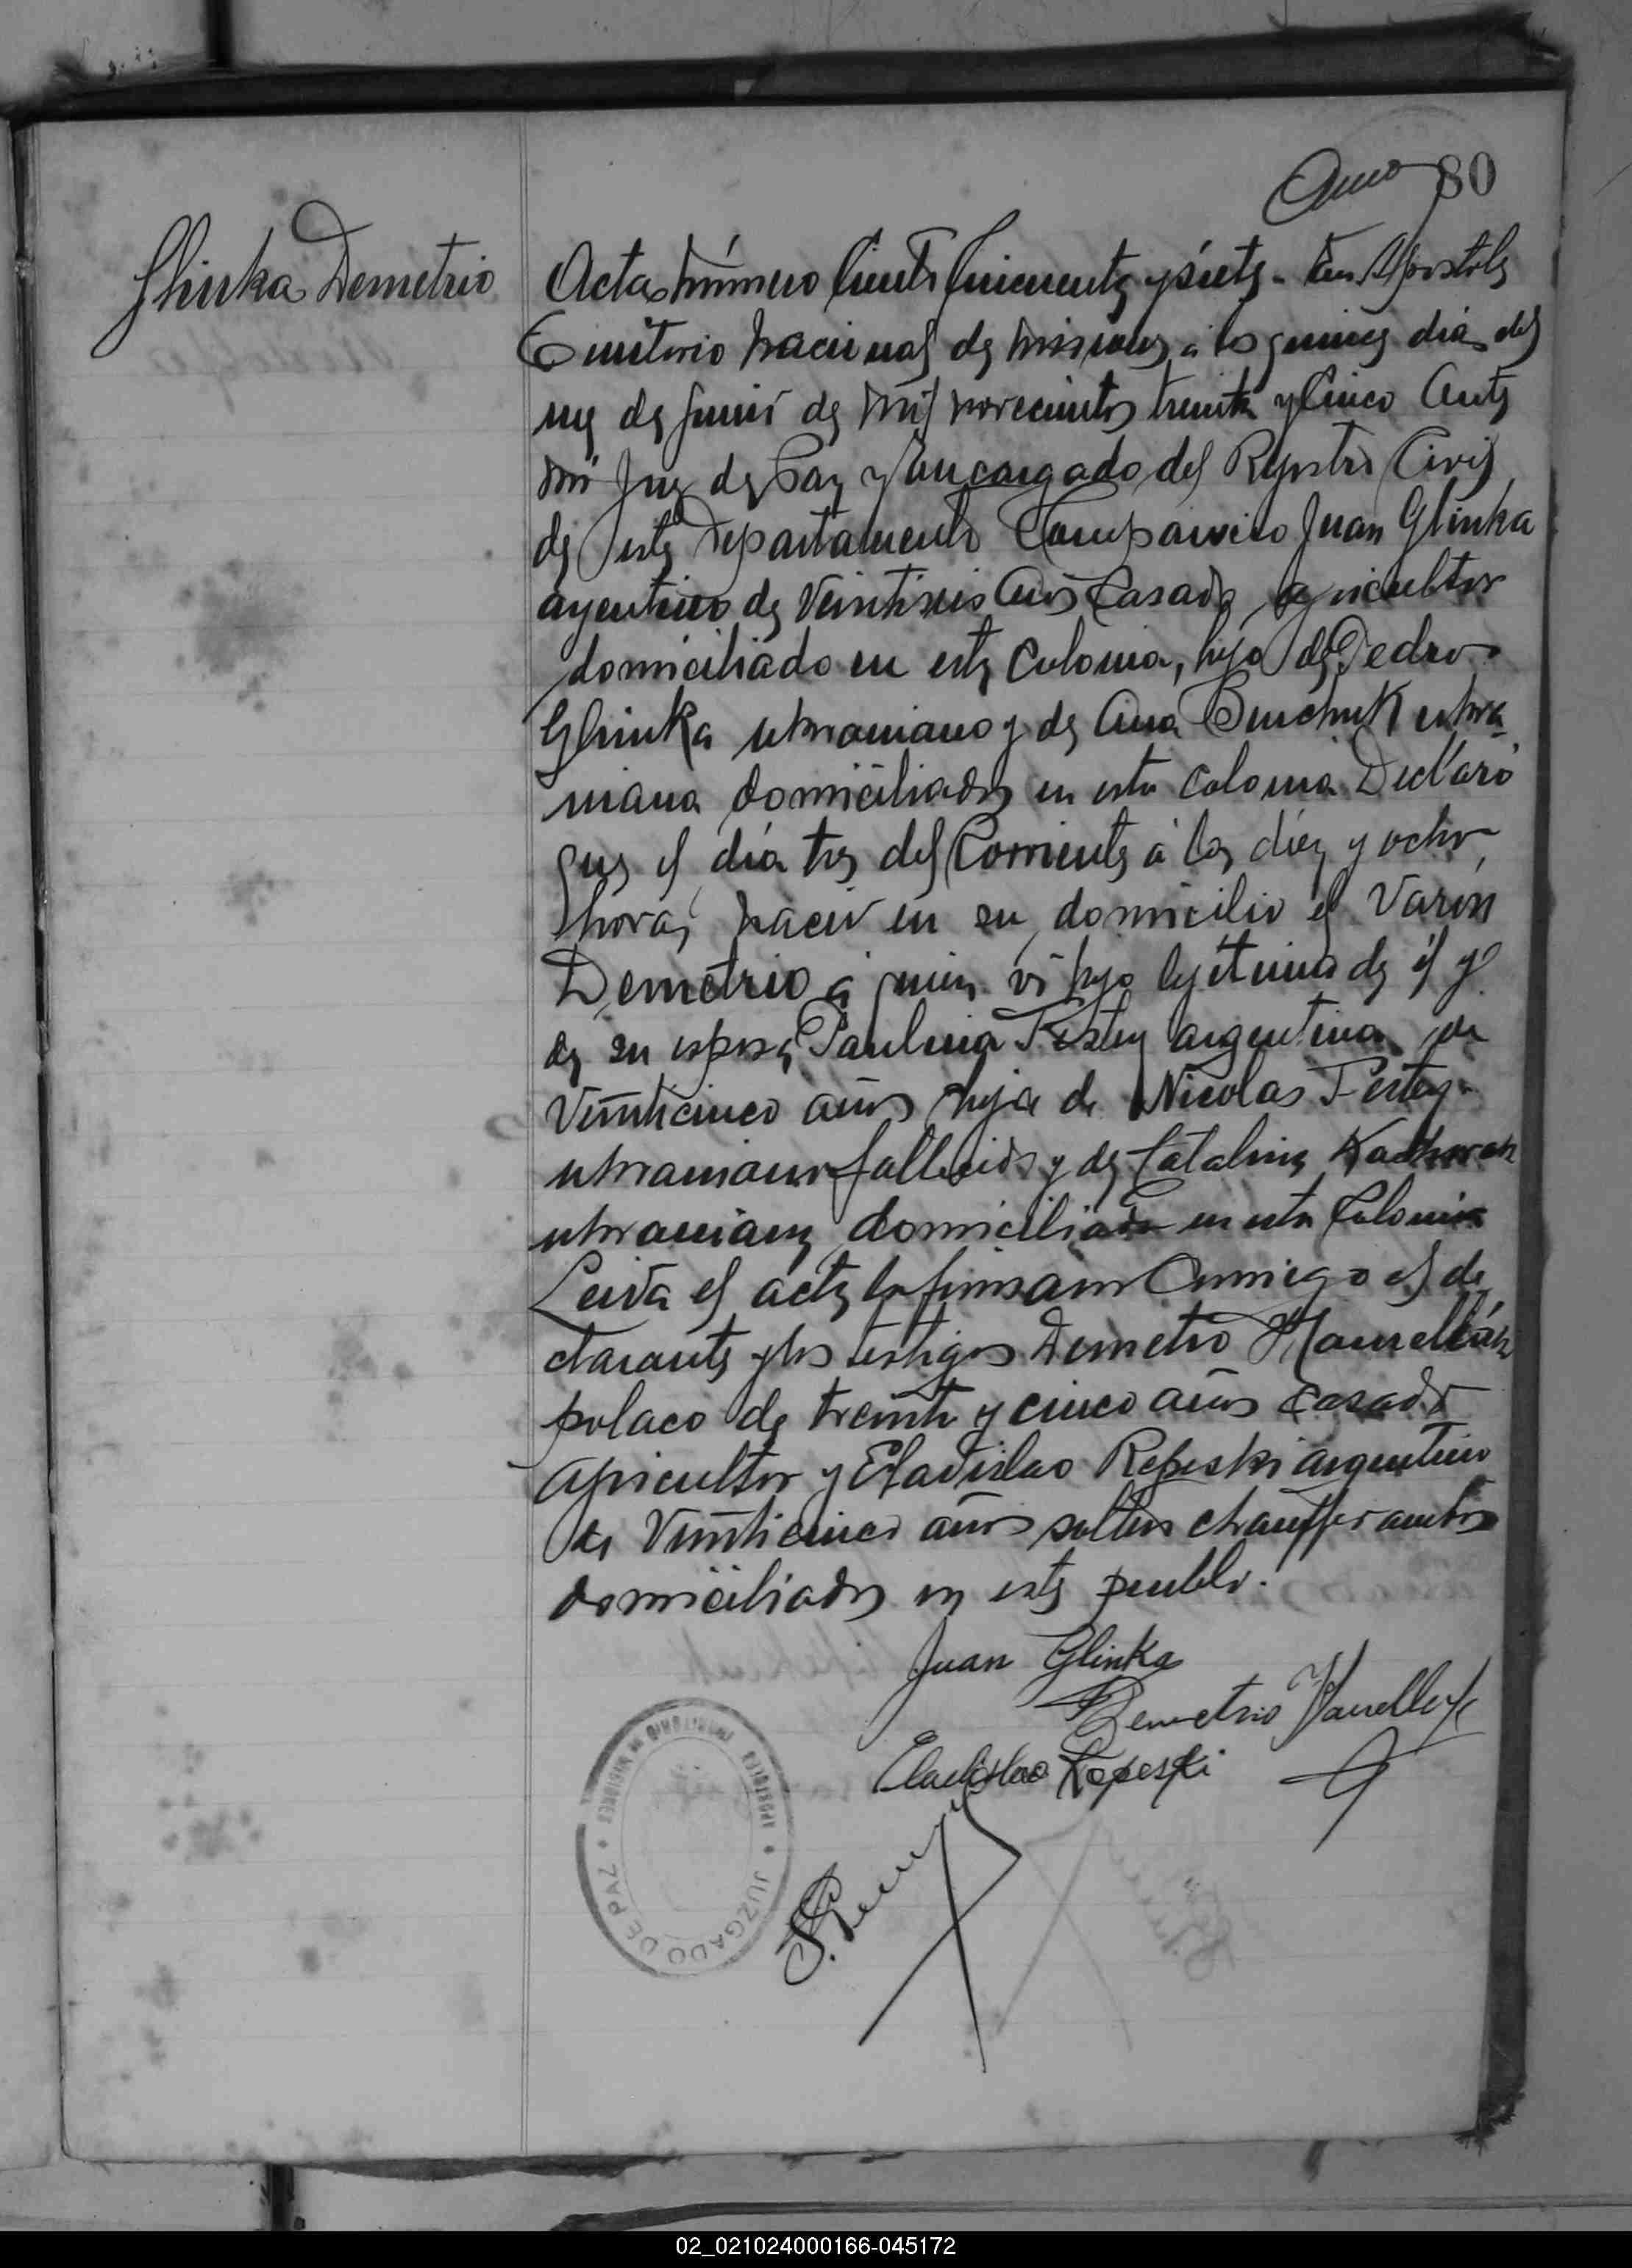 80
Glinka Demetrio
Acta número Ciento Cincuenta y siete - En Apóstoles
Territorio Nacional de Misiones, a los quince días del
mes de Junio de Mil novecientos treinta y Cinco Ante
mi Juez de Paz y Encargado del Registro Civil
de este Departamento Compareció Juan Glinka
argentino de Veintiseis años Casado agricultor
domiciliado en esta Colonia, hijo de Pedro
Glinka ukraniano y de Ana ukra
niana domiciliados en esta Colonia Declaró
que el día tres del Corriente á las diez y ocho
horas nació en su domicilio el Varón
Demetrio á quien ví hijo lejitimo de él y
de su esposa Paulina Testey argentina de
Veinticinco años hija de Nicolas Testey
ukraniano fallecido y de Catalina
ukraniana domiciliada en esta Colonia
Leida el acta la firmaron Conmigo el de
clarante y los testigos Demetrio
polaco de treinta y cinco años casado
agricultor y Eladislao Repeski argentino
de Veinticinco años soltero chauffer ambos
domiciliados en este pueblo.
Juan Glinka
Demetrio
Eladislao Repeski
APOSTOLES TERRITORIO DE MISIONES
JUZGADO DE PAZ
02_021024000166-045172